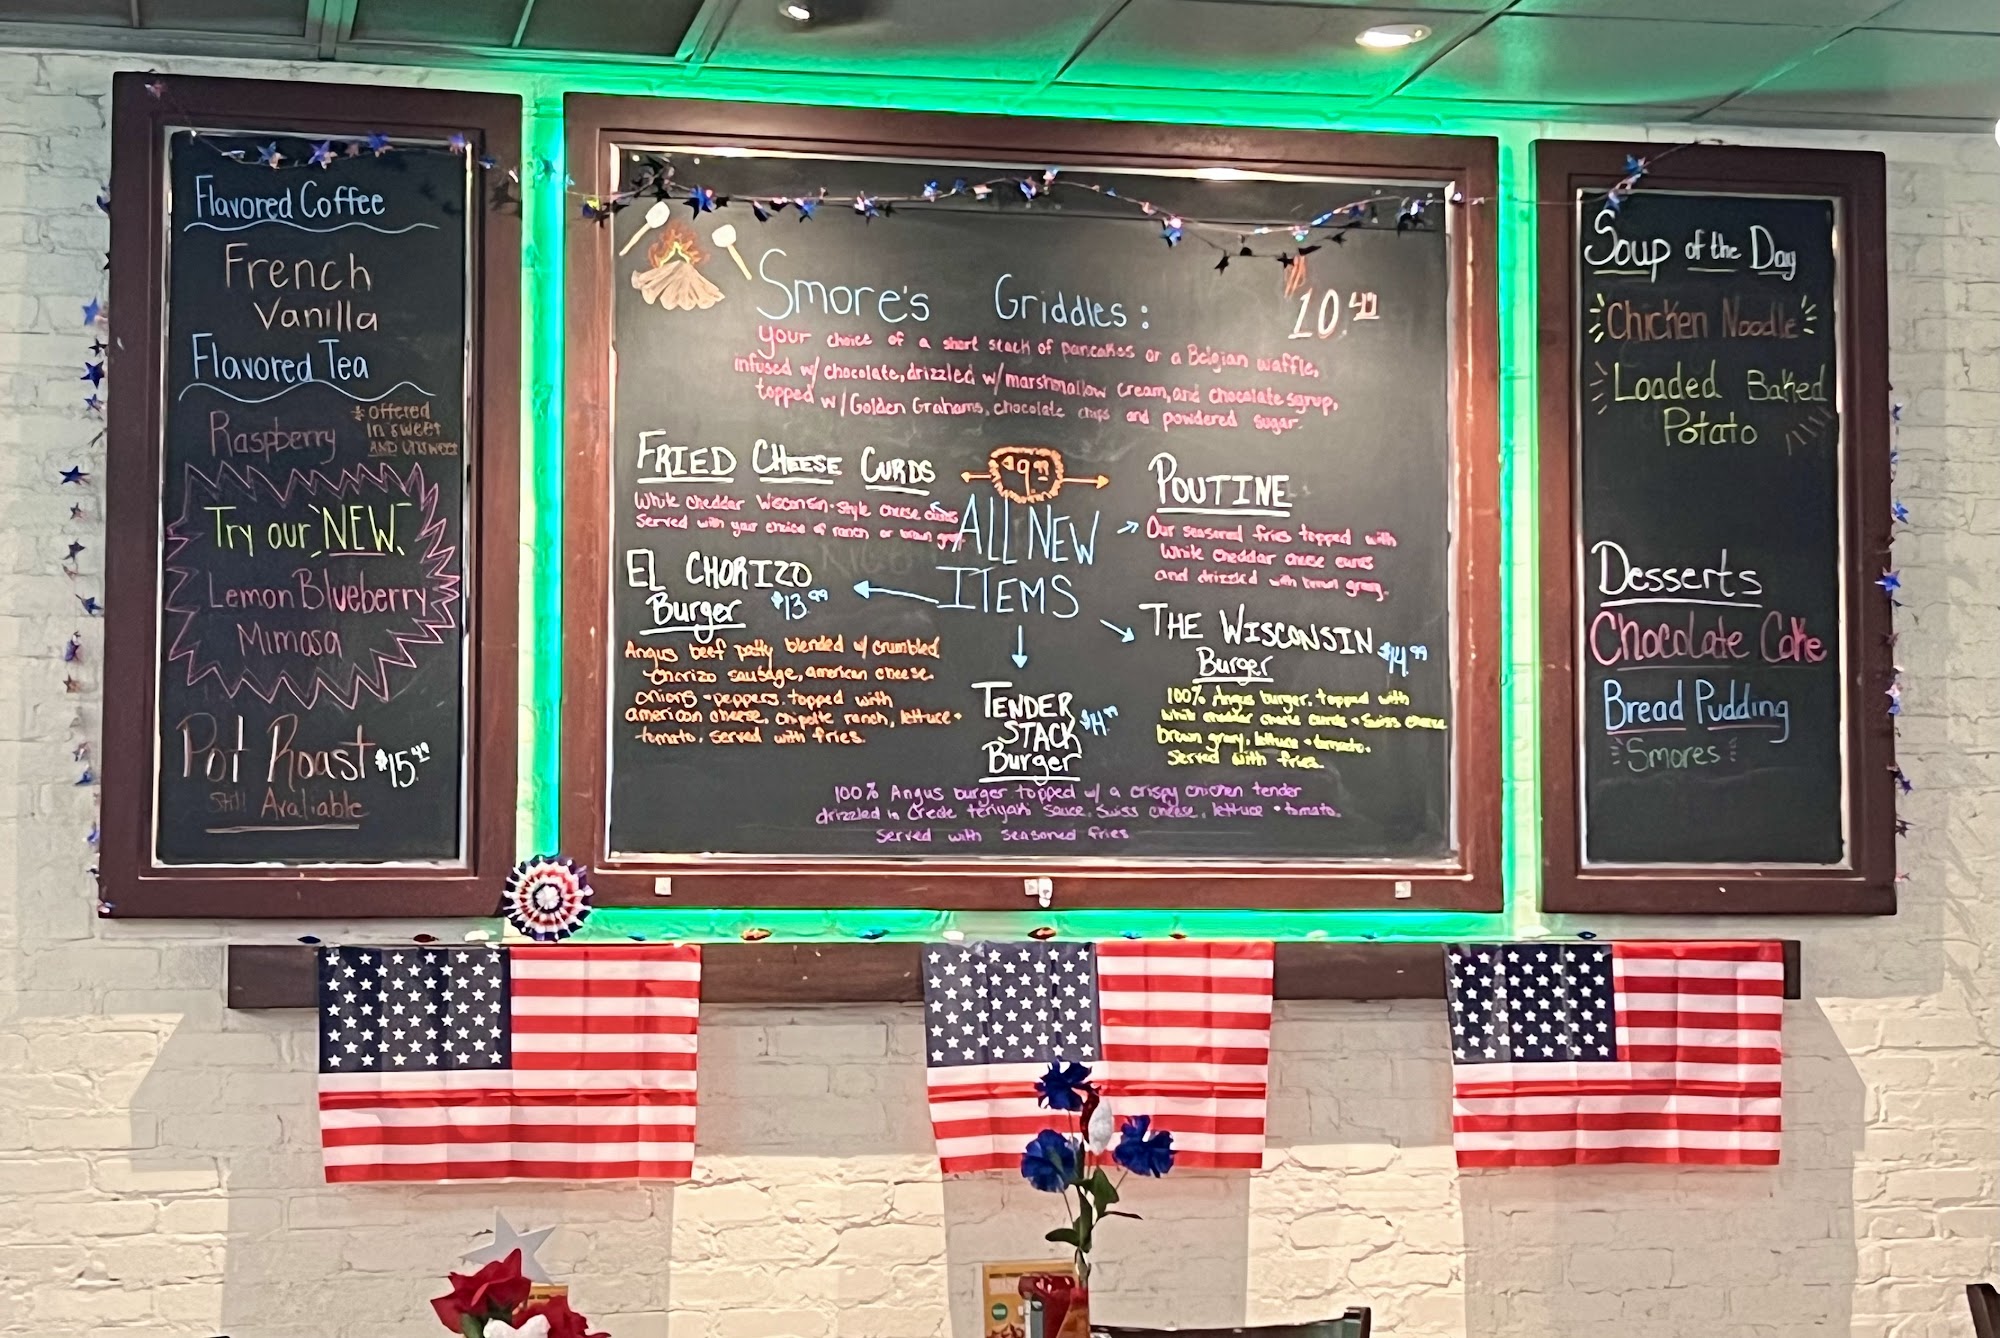 Flavored Coffee
French
Vanilla
Flavored Tea
Raspberry
* offered
in sweet
AND unsweet
Try our NEW
Lemon Blueberry
Mimosa
Pot Roast $15.49
Still Avaliable
Smore's Griddles: 10.49
Your choice of a short stack of pancakes or a Belgian waffle,
infused w/ chocolate, drizzled w/ marshmallow cream, and chocolate syrup,
topped w/ Golden Grahams, chocolate chips and powdered sugar.
FRIED CHEESE CURDS
White cheddar Wisconsin-style cheese curds
Served with your choice of ranch or brown gravy
$9.99
ALL NEW
ITEMS
POUTINE
Our seasoned fries topped with
White cheddar cheese curds
and drizzled with brown gravy.
EL CHORIZO
Burger $13.99
Angus beef patty blended w/ crumbled
chorizo sausage, american cheese.
onions + peppers. topped with
american cheese, chipolte ranch, lettuce +
tomato. Served with fries.
THE WISCONSIN
Burger $14.99
100% Angus burger, topped with
White cheddar cheese curds + Swiss cheese
brown gravy, lettuce + tomato.
Served with fries.
TENDER
STACK
Burger
100% Angus burger topped w/ a crispy chicken tender
drizzled in teriyaki sauce, Swiss cheese, lettuce + tomato.
Served with seasoned fries
Soup of the Day
Chicken Noodle
Loaded Baked
Potato
Desserts
Chocolate Cake
Bread Pudding
Smores